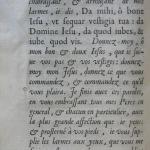 charassant, & arrosant de mes
larmes, il dit, Da mihi, ô bone
Iesu, vt sequar vestigia tua : da
Domine Iesu, da quod iubes, &
iube quod vis. Donnez-moy, ô
mon bon & doux Iesus, que ie
suiue vos pas & vos vestiges : donnez-
moy mon Iesus, donnez ce que vous
commandez, & commandez ce qu'il
vous plaira. Ie finis auec ces paroles,
en vous embrassant tous mes Peres en
general, & chacun en particulier, auec
la plus grande affection que ie peux,
& prosterné à vos pieds, ie vous sup-
plie les larmes aux yeux, que vous